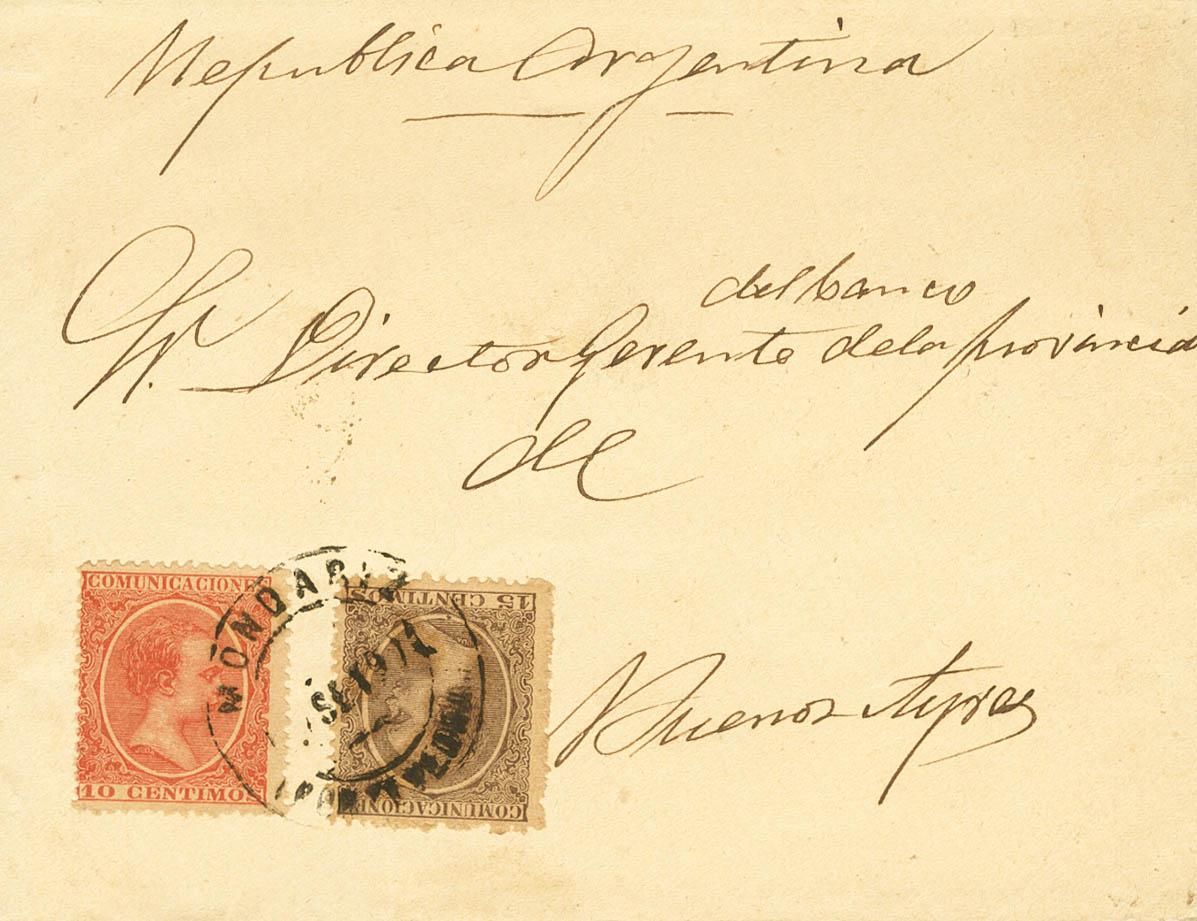 Republica Argentina
del banco
Sr. Director Gerente de la provincia
de
Buenos Ayres
COMUNICACIONES
10 CENTIMOS
15 CENTIMOS
COMUNICACIONES
MONDARIZ
SET 91
(PONTEVEDRA)